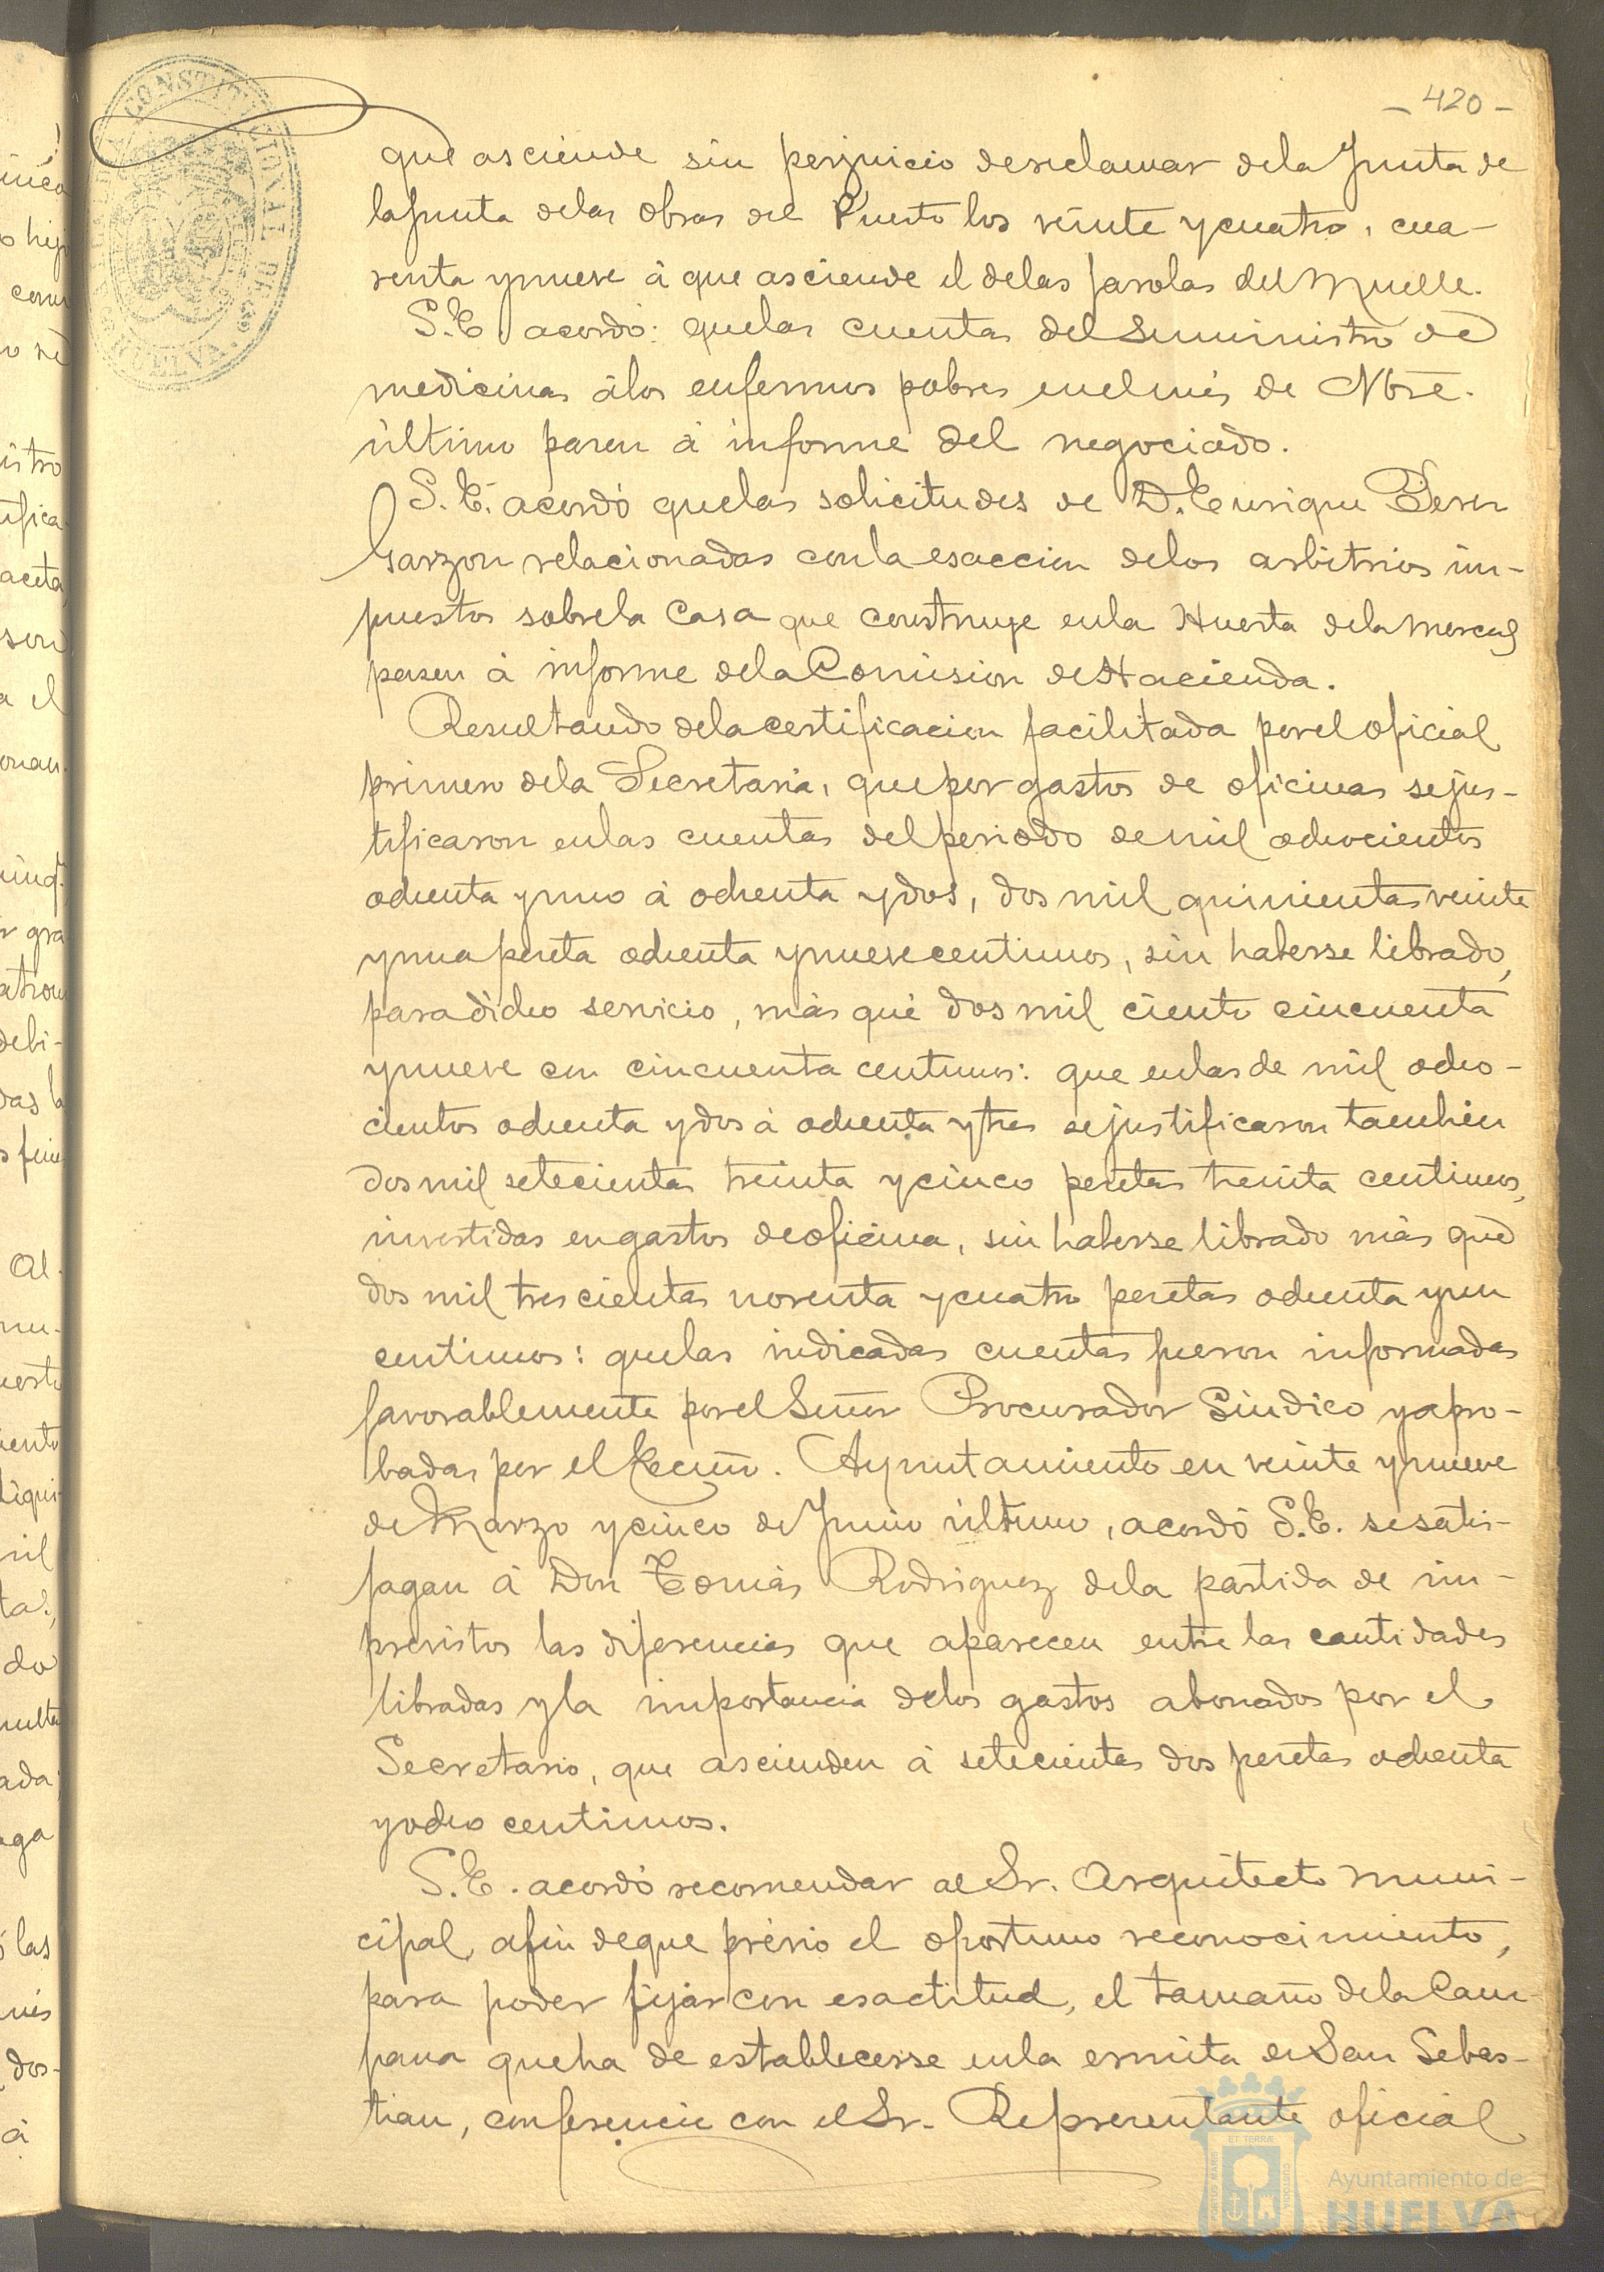 - 420 -
que asciende sin perjuicio de reclamar de la Junta de
la Junta de las obras del Puerto los veinte y cuatro, cua-
renta y nueve á que asciende el de las farolas del Muelle.
S.E. acordó: que las cuentas del Suministro de
medicinas á los enfermos pobres en el mes de Nbre.
último pasen á informe del negociado.
S.E. acordó que las solicitudes de D. Enrique Perez
Garzon relacionadas con la esaccion de los arbitrios im-
puestos sobre la Casa que construye en la Huerta de la Merced
pasen á informe de la Comision de Hacienda.
Resultando de la certificacion facilitada por el oficial
primero de la Secretaria, que por gastos de oficinas se jus-
tificaron en las cuentas del periodo de mil ochocientos
ochenta y uno á ochenta y dos, dos mil quinientas veinte
y una peseta ochenta y nueve centimos, sin haberse librado,
para dicho servicio, más que dos mil ciento cincuenta
y nueve con cincuenta centimos: que en las de mil ocho-
cientos ochenta y dos á ochenta y tres se justificaron tambien
dos mil setecientas treinta y cinco pesetas treinta centimos,
invertidas en gastos de oficina, sin haberse librado más que
dos mil trescientas noventa y cuatro pesetas ochenta y un
centimos: que las indicadas cuentas fueron informadas
favorablemente por el Señor Procurador Sindico y apro-
badas por el Excmo. Ayuntamiento en veinte y nueve
de Marzo y cinco de Junio último, acordó S.E. se satis-
fagan á Don Tomás Rodriguez de la partida de im-
previstos las diferencias que aparecen entre las cantidades
libradas y la importancia de los gastos abonados por el
Secretario, que ascienden á setecientas dos pesetas ochenta
y ocho centimos.
S.E. acordó recomendar al Sr. Arquitecto muni-
cipal, afin de que prévio el oportuno reconocimiento,
para poder fijar con esactitud, el tamaño de la Cam-
pana que ha de establecerse en la ermita de San Sebas-
tian, conferencie con el Sr. Representante oficial
Ayuntamiento de
HUELVA